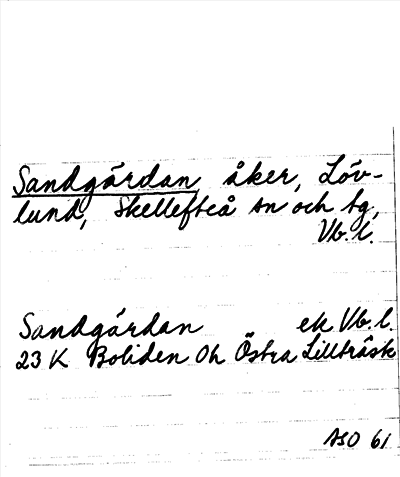 Sandgärdan åker, Löv-
lund, Skellefteå sn och tg,
Vb. l.
Sandgärdan ek Vb. l.
23 K Boliden Oh Östra Lillträsk
ASO 61